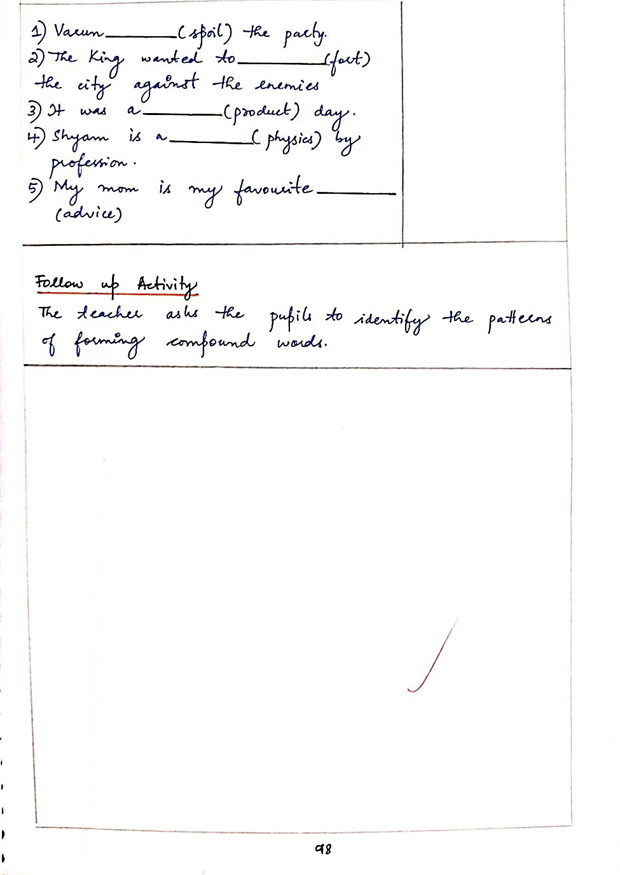 1) Varun ________ (spoil) the party.
2) The King wanted to ________ (fort)
the city against the enemies
3) It was a ________ (product) day.
4) Shyam is a ________ (physics) by
profession.
5) My mom is my favourite ________
(advice)
Follow up Activity
The teacher asks the pupils to identify the patterns
of forming compound words.
98